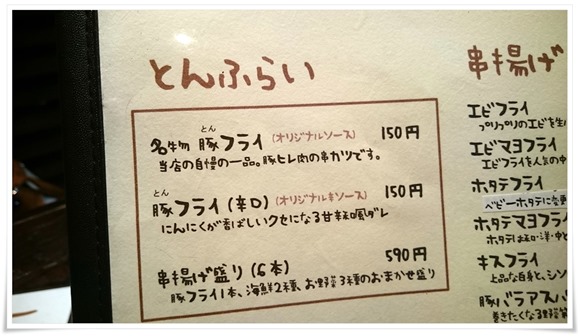 とんふらい
名物 豚フライ (オリジナルソース) 150円
とん
当店の自慢の一品。豚ヒレ肉の串カツです。
とん
豚フライ(辛口) (オリジナルキソース) 150円
にんにくが香ばしいクセになる甘辛和風ダレ
串揚げ盛り(6本) 590円
豚フライ1本、海鮮2種、お野菜3種のおまかせ盛り
串揚げ
エビフライ
プリっプリのエビを生
エビマヨフライ
エビフライを人気の
ホタテフライ
ベビーホタテに変更
ホタテマヨフライ
ホタテは和・洋・中と
キスフライ
上品な白身と、シソ
豚バラアスパ
巻きたくなる野菜